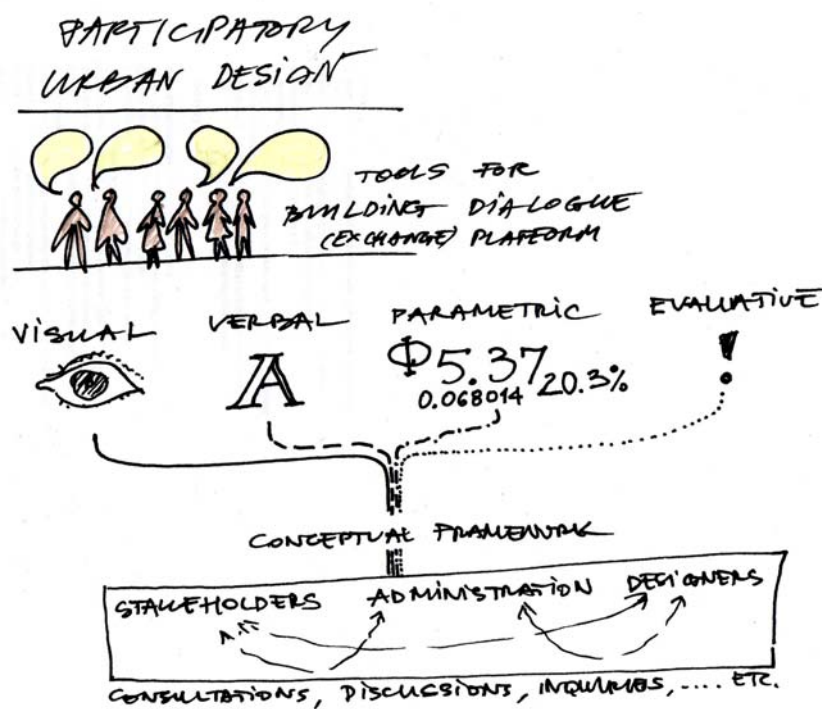 PARTICIPATORY
URBAN DESIGN
TOOLS FOR
BUILDING DIALOGUE
(EXCHANGE) PLATFORM
VISUAL VERBAL PARAMETRIC EVALUATIVE
A Φ5.37 !
0.068014 20.3%
CONCEPTUAL FRAMEWORK
STAKEHOLDERS ADMINISTRATION DESIGNERS
CONSULTATIONS, DISCUSSIONS, INQUIRIES,.... ETC.